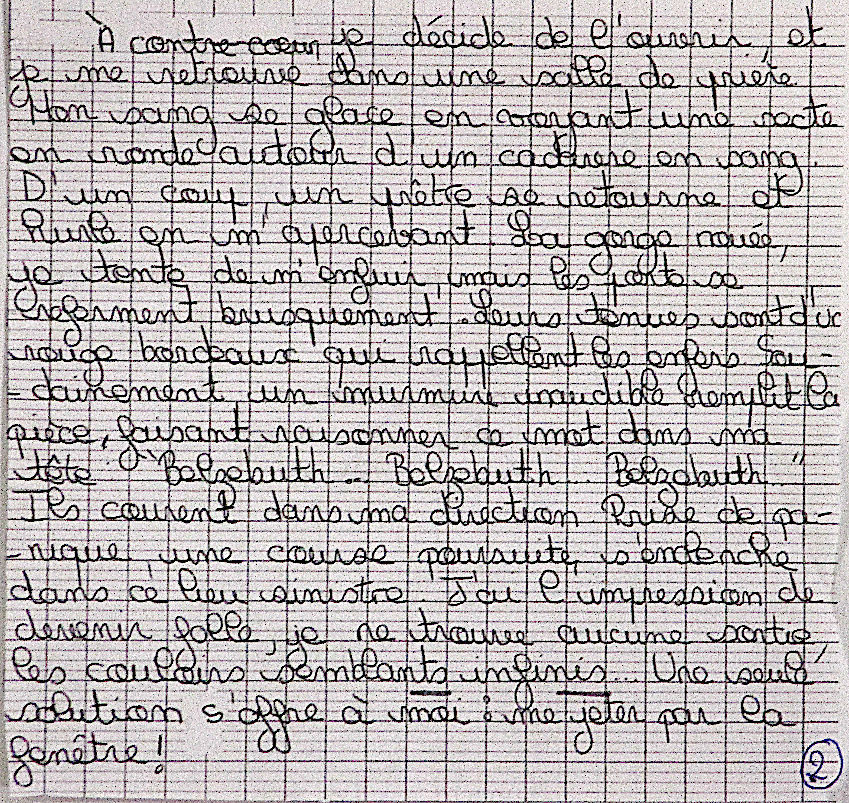 À contre cœur, je décide de l'ouvrir, et
je me retrouve dans une salle de prière.
Mon sang se glace en voyant une secte
en ronde autour d'un cadavre en sang.
D'un coup, un prêtre se retourne et
hurle en m'apercevant. La gorge nouée,
je tente de m'enfuir, mais les porte se
referment brusquement. Leurs tenues sont d'un
rouge bordeaux qui rappellent les enfers. Sou-
-dainement un murmure inaudible remplit la
pièce, faisant raisonner ce mot dans ma
tête : "Belzebuth... Belzebuth... Belzebuth..."
Ils courent dans ma direction. Prise de pa-
-nique, une course poursuite s'enclenche
dans ce lieu sinistre. J'ai l'impression de
devenir folle, je ne trouve aucune sortie,
les couloirs semblants infinis... Une seule
solution s'offre à moi : me jeter par la
fenêtre !
2